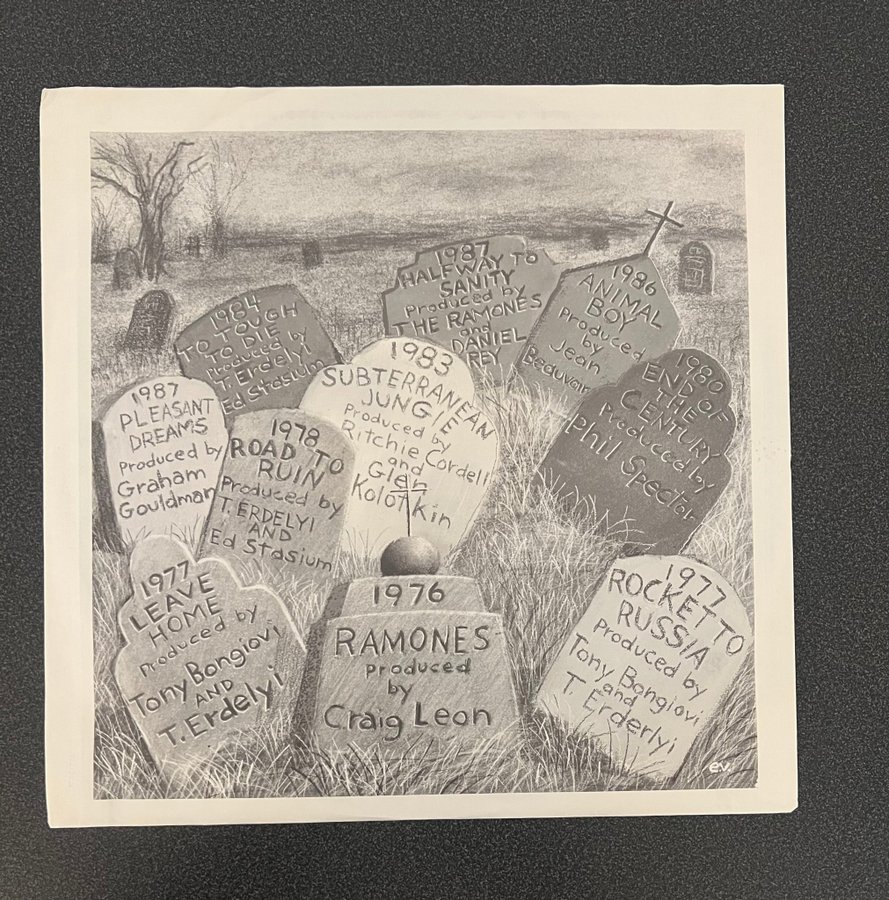 1987
HALFWAY TO
SANITY
Produced by
THE RAMONES
and
DANIEL
REY
1986
ANIMAL
BOY
Produced
by
Jean
Beauvoir
1984
TO TOUGH
TO DIE
Produced by
T. Erdelyi
Ed Stasium
1983
SUBTERRANEAN
JUNGLE
Produced by
Ritchie Cordell
and
Glen
Kolotkin
1980
END OF
THE
CENTURY
Produced by
Phil Spector
1987
PLEASANT
DREAMS
Produced by
Graham
Gouldman
1978
ROAD TO
RUIN
Produced by
T. ERDELYI
AND
Ed Stasium
1977
LEAVE
HOME
Produced by
Tony Bongiovi
AND
T. Erdelyi
1976
RAMONES
produced
by
Craig Leon
1977
ROCKET TO
RUSSIA
Produced by
Tony Bongiovi
and
T. Erderlyi
e.v.